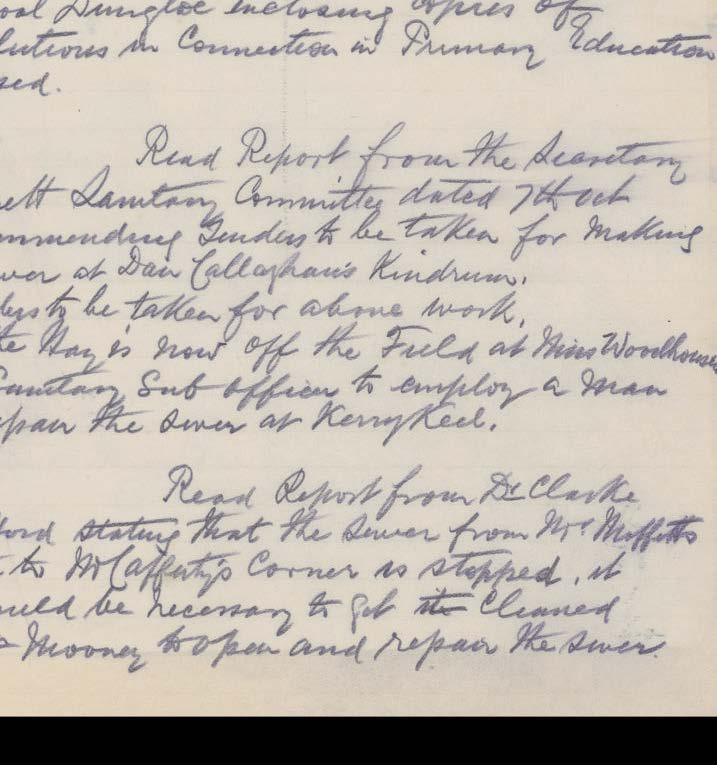 ool Dungloe enclosing copies of
lutions in Connection in Primary Education
sed.
Read Report from the Secretary
ett Sanitary Committee dated 7th Oct
ommending Tenders to be taken for making
wer at Dan Callaghan's Kindrum.
ders to be taken for above work.
te Hay is now off the Field at Miss Woodhouses
Sanitary Sub officer to employ a man
epair the sewer at Kerrykeel.
Read Report from Dr Clarke
ford stating that the sewer from Mr Moffitts
t to McCafferty's Corner is stopped, it
ould be necessary to get it Cleaned
Mooney to open and repair the sewer.